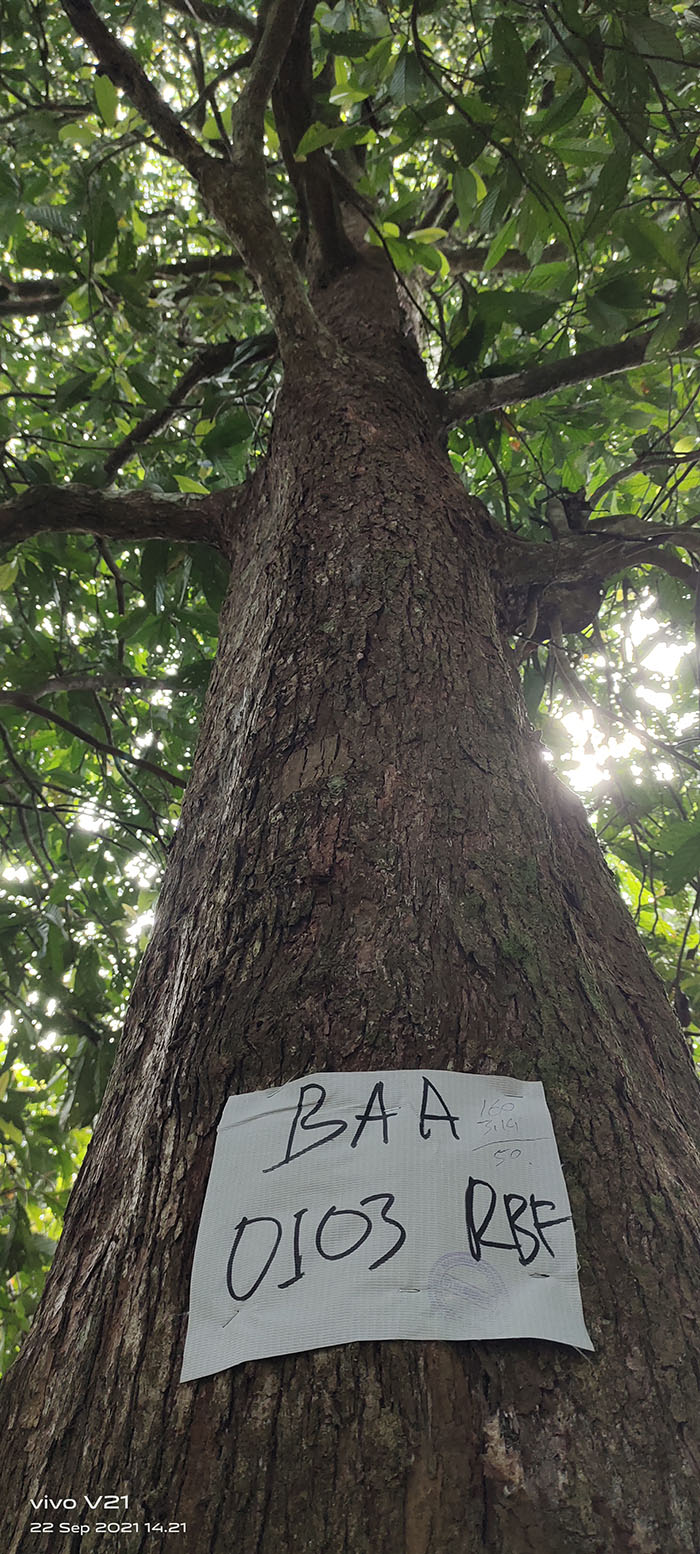 BAA
160
3,14
50.
0103 RBF
vivo V21
22 Sep 2021 14.21